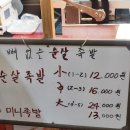 뼈없는 순살 족발
순살족발 小(1~2) 12,000원
中(2~3) 16,000원
大(3~5) 24,000원
미니족발 13,000원